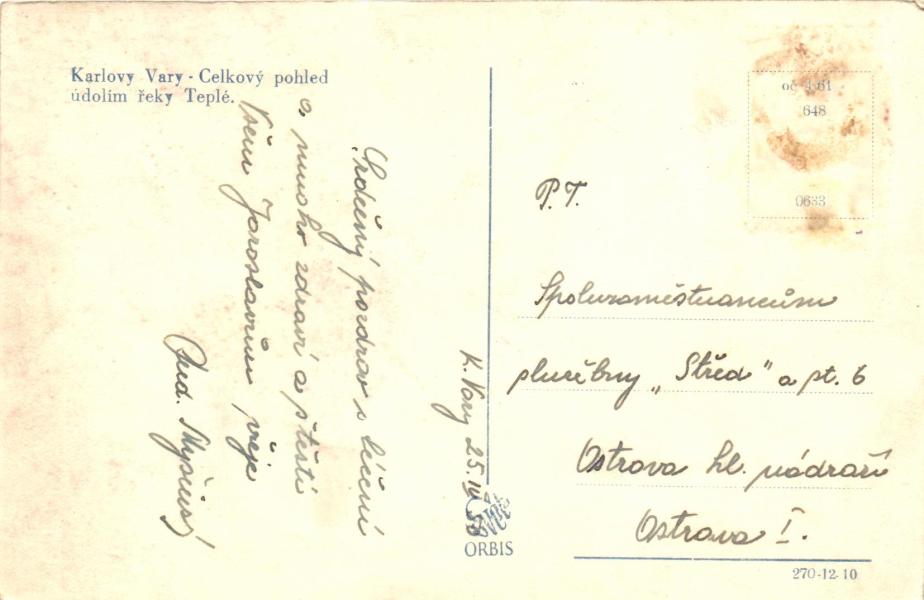 Karlovy Vary - Celkový pohled
údolím řeky Teplé.
K. Vary 25. IV. 58
Srdečný pozdrav s léčení
a mnoho zdraví a štěstí
všem Jaroslavům přeje
oč-4-61
648
0633
P. T.
Spoluzaměstnancům
služebny „Střed" a pt. 6
Ostrava hl. nádraží
Ostrava I.
ORBIS
270-12-10